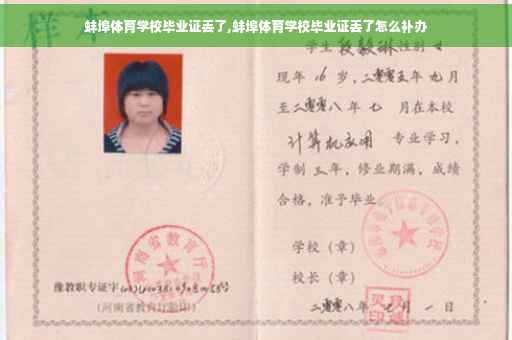 蚌埠体育学校毕业证丢了,蚌埠体育学校毕业证丢了怎么补办
样本
学生 段毅琳 性别 女
现年 16 岁，二零零五年 九月
至二零零八年 七 月在本校
计算机应用 专业学习，
学制 三 年，修业期满，成绩
合格，准予毕业
学校（章）
校长（章）
河南省教育厅
豫教职专证字
(河南省教育厅验印)
二零零八年 月 一 日